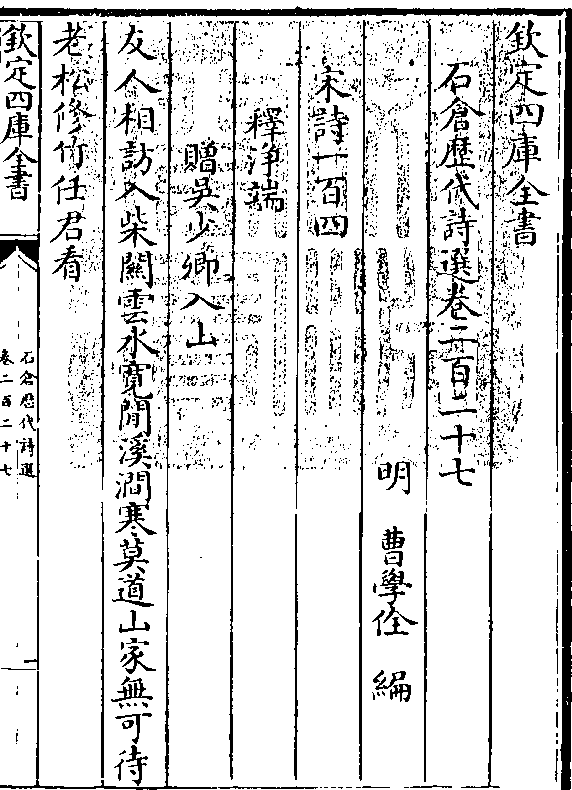 欽定四庫全書
石倉歷代詩選卷二百二十七
明 曹學佺 編
宋詩一百四
釋淨端
贈吳少卿入山
友人相訪入柴關雲水寛閒溪澗寒莫道山家無可待
老松修竹任君看
欽定四庫全書
石倉歷代詩選
卷二百二十七
一